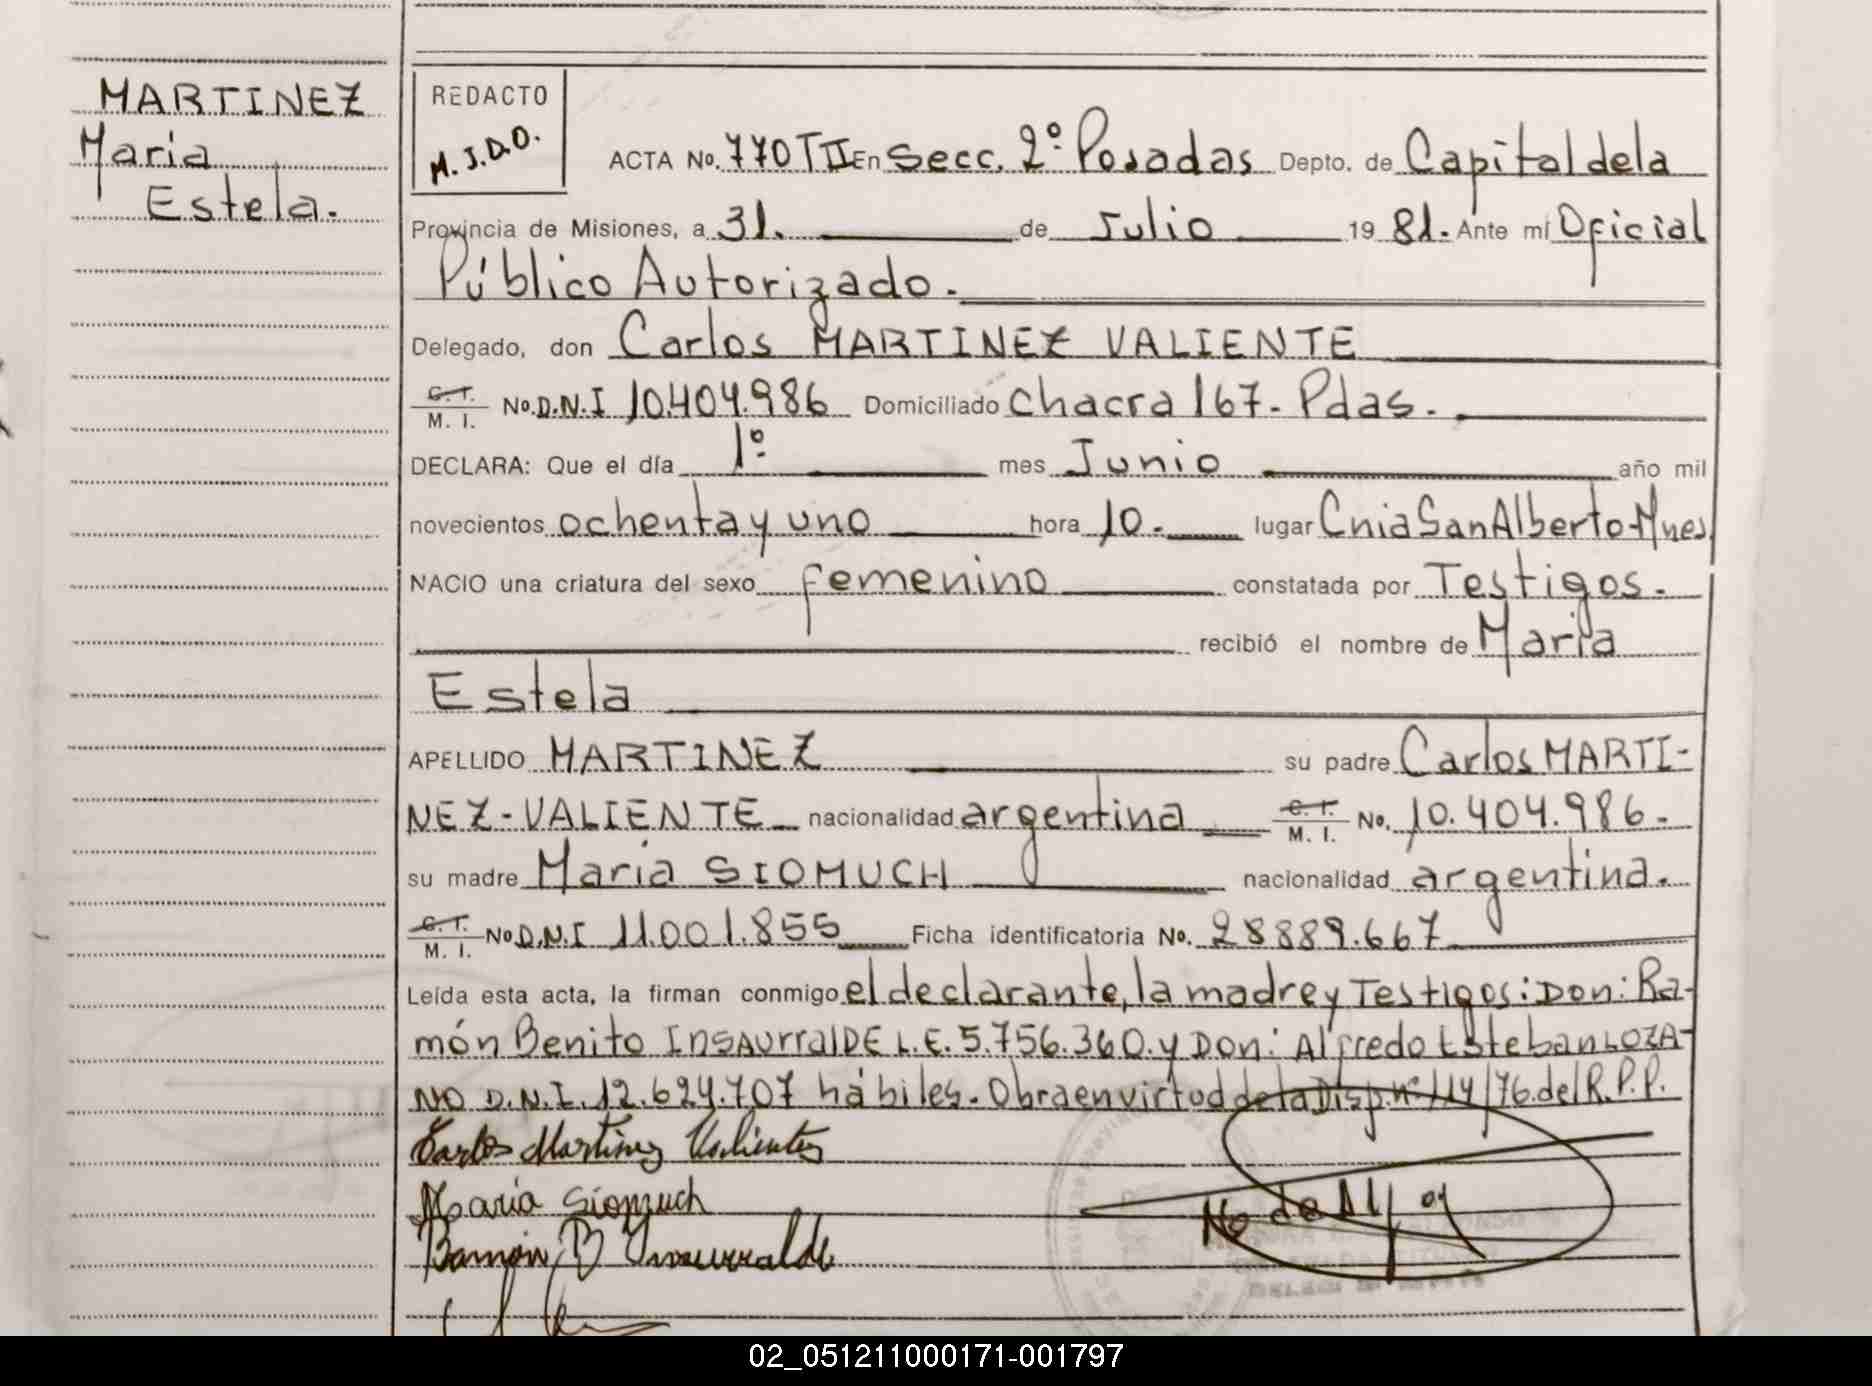 MARTINEZ
Maria
Estela.
REDACTO
M.J.D.O.
ACTA No. 770 TII En Secc. 2º Posadas Depto. de Capital dela
Provincia de Misiones, a 31. de Julio 19 81. Ante mí Oficial
Público Autorizado.
Delegado, don Carlos MARTINEZ VALIENTE
C.I. / M. I. No. D.N.I 10.404.986 Domiciliado Chacra 167- Pdas.
DECLARA: Que el día 1º mes Junio año mil
novecientos ochenta y uno hora 10. lugar Cnia San Alberto-Mnes
NACIO una criatura del sexo femenino constatada por Testigos.
recibió el nombre de Maria
Estela
APELLIDO MARTINEZ su padre Carlos MARTI-
NEZ-VALIENTE nacionalidad argentina C. I. / M. I. No. 10.404.986.
su madre Maria SIOMUCH nacionalidad argentina.
C.I. / M. I. No D.N.I 11.001.855 Ficha identificatoria No. 28889.667
Leída esta acta, la firman conmigo el declarante, la madre y Testigos: Don: Ra-
món Benito INSAurralDE L.E. 5.756.360. y Don: Alfredo Esteban LOZA-
NO D.N.I. 12.624.707 hábiles. Obra en virtud de la Disp. nº 114/76 del R.P.P.
Carlos Martinez Valiente
Maria Siomuch
Ramón B Insaurralde
02_051211000171-001797